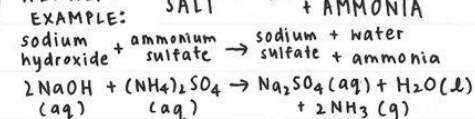 SALT + AMMONIA
EXAMPLE:
sodium hydroxide + ammonium sulfate → sodium sulfate + water + ammonia
2NaOH + (NH4)2SO4 → Na2SO4(aq) + H2O(l)
(aq) (aq) + 2NH3(g)